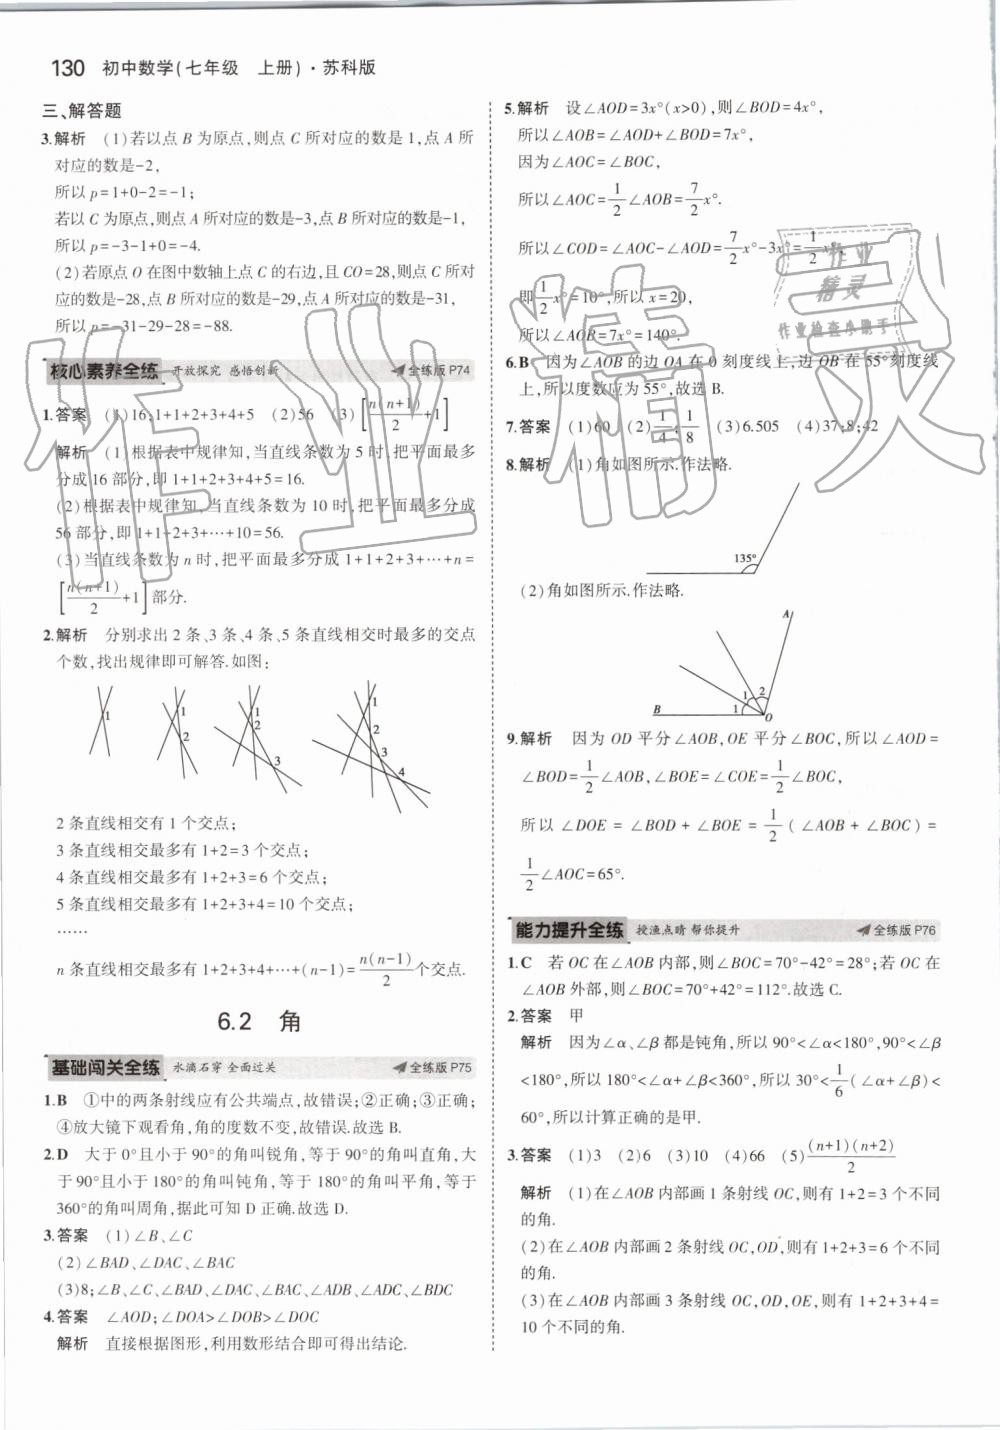 130 初中数学(七年级 上册)·苏科版
三、解答题
3.解析 (1)若以点 B 为原点,则点 C 所对应的数是 1,点 A 所
对应的数是-2,
所以 p=1+0-2=-1;
若以 C 为原点,则点 A 所对应的数是-3,点 B 所对应的数是-1,
所以 p=-3-1+0=-4.
(2)若原点 O 在图中数轴上点 C 的右边,且 CO=28,则点 C 所对
应的数是-28,点 B 所对应的数是-29,点 A 所对应的数是-31,
所以 p=-31-29-28=-88.
核心素养全练 开放探究 感悟创新 全练版 P74
1.答案 (1)16;1+1+2+3+4+5 (2)56 (3)[n(n+1)/2+1]
解析 (1)根据表中规律知,当直线条数为 5 时,把平面最多
分成 16 部分,即 1+1+2+3+4+5=16.
(2)根据表中规律知,当直线条数为 10 时,把平面最多分成
56 部分,即 1+1+2+3+…+10=56.
(3)当直线条数为 n 时,把平面最多分成 1+1+2+3+…+n=
[n(n+1)/2+1]部分.
2.解析 分别求出 2 条、3 条、4 条、5 条直线相交时最多的交点
个数,找出规律即可解答.如图:
1 1 2 1 2 3 1 2 3 4
2 条直线相交有 1 个交点;
3 条直线相交最多有 1+2=3 个交点;
4 条直线相交最多有 1+2+3=6 个交点;
5 条直线相交最多有 1+2+3+4=10 个交点;
……
n 条直线相交最多有 1+2+3+4+…+(n-1)=n(n-1)/2个交点.
6.2 角
基础闯关全练 水滴石穿 全面过关 全练版 P75
1.B ①中的两条射线应有公共端点,故错误;②正确;③正确;
④放大镜下观看角,角的度数不变,故错误.故选 B.
2.D 大于 0°且小于 90°的角叫锐角,等于 90°的角叫直角,大
于 90°且小于 180°的角叫钝角,等于 180°的角叫平角,等于
360°的角叫周角,据此可知 D 正确.故选 D.
3.答案 (1)∠B、∠C
(2)∠BAD、∠DAC、∠BAC
(3)8;∠B、∠C、∠BAD、∠DAC、∠BAC、∠ADB、∠ADC、∠BDC
4.答案 ∠AOD;∠DOA>∠DOB>∠DOC
解析 直接根据图形,利用数形结合即可得出结论.
5.解析 设∠AOD=3x°(x>0),则∠BOD=4x°,
所以∠AOB=∠AOD+∠BOD=7x°,
因为∠AOC=∠BOC,
所以∠AOC=1/2∠AOB=7/2x°.
所以∠COD=∠AOC-∠AOD=7/2x°-3x°=1/2x°,
即1/2x°=10°,所以 x=20,
所以∠AOB=7x°=140°.
6.B 因为∠AOB 的边 OA 在 0 刻度线上,边 OB 在 55°刻度线
上,所以度数应为 55°,故选 B.
7.答案 (1)60 (2)1/4;1/8 (3)6.505 (4)37;8;42
8.解析 (1)角如图所示.作法略.
135°
(2)角如图所示.作法略.
A
1 2
B 1 O
9.解析 因为 OD 平分∠AOB,OE 平分∠BOC,所以∠AOD=
∠BOD=1/2∠AOB,∠BOE=∠COE=1/2∠BOC,
所以∠DOE=∠BOD+∠BOE=1/2(∠AOB+∠BOC)=
1/2∠AOC=65°.
能力提升全练 授渔点睛 帮你提升 全练版 P76
1.C 若 OC 在∠AOB 内部,则∠BOC=70°-42°=28°;若 OC 在
∠AOB 外部,则∠BOC=70°+42°=112°.故选 C.
2.答案 甲
解析 因为∠α、∠β都是钝角,所以 90°<∠α<180°,90°<∠β
<180°,所以 180°<∠α+∠β<360°,所以 30°<1/6(∠α+∠β)<
60°,所以计算正确的是甲.
3.答案 (1)3 (2)6 (3)10 (4)66 (5)(n+1)(n+2)/2
解析 (1)在∠AOB 内部画 1 条射线 OC,则有 1+2=3 个不同
的角.
(2)在∠AOB 内部画 2 条射线 OC,OD,则有 1+2+3=6 个不同
的角.
(3)在∠AOB 内部画 3 条射线 OC,OD,OE,则有 1+2+3+4=
10 个不同的角.
作业精灵
作业
精灵
作业检查小助手